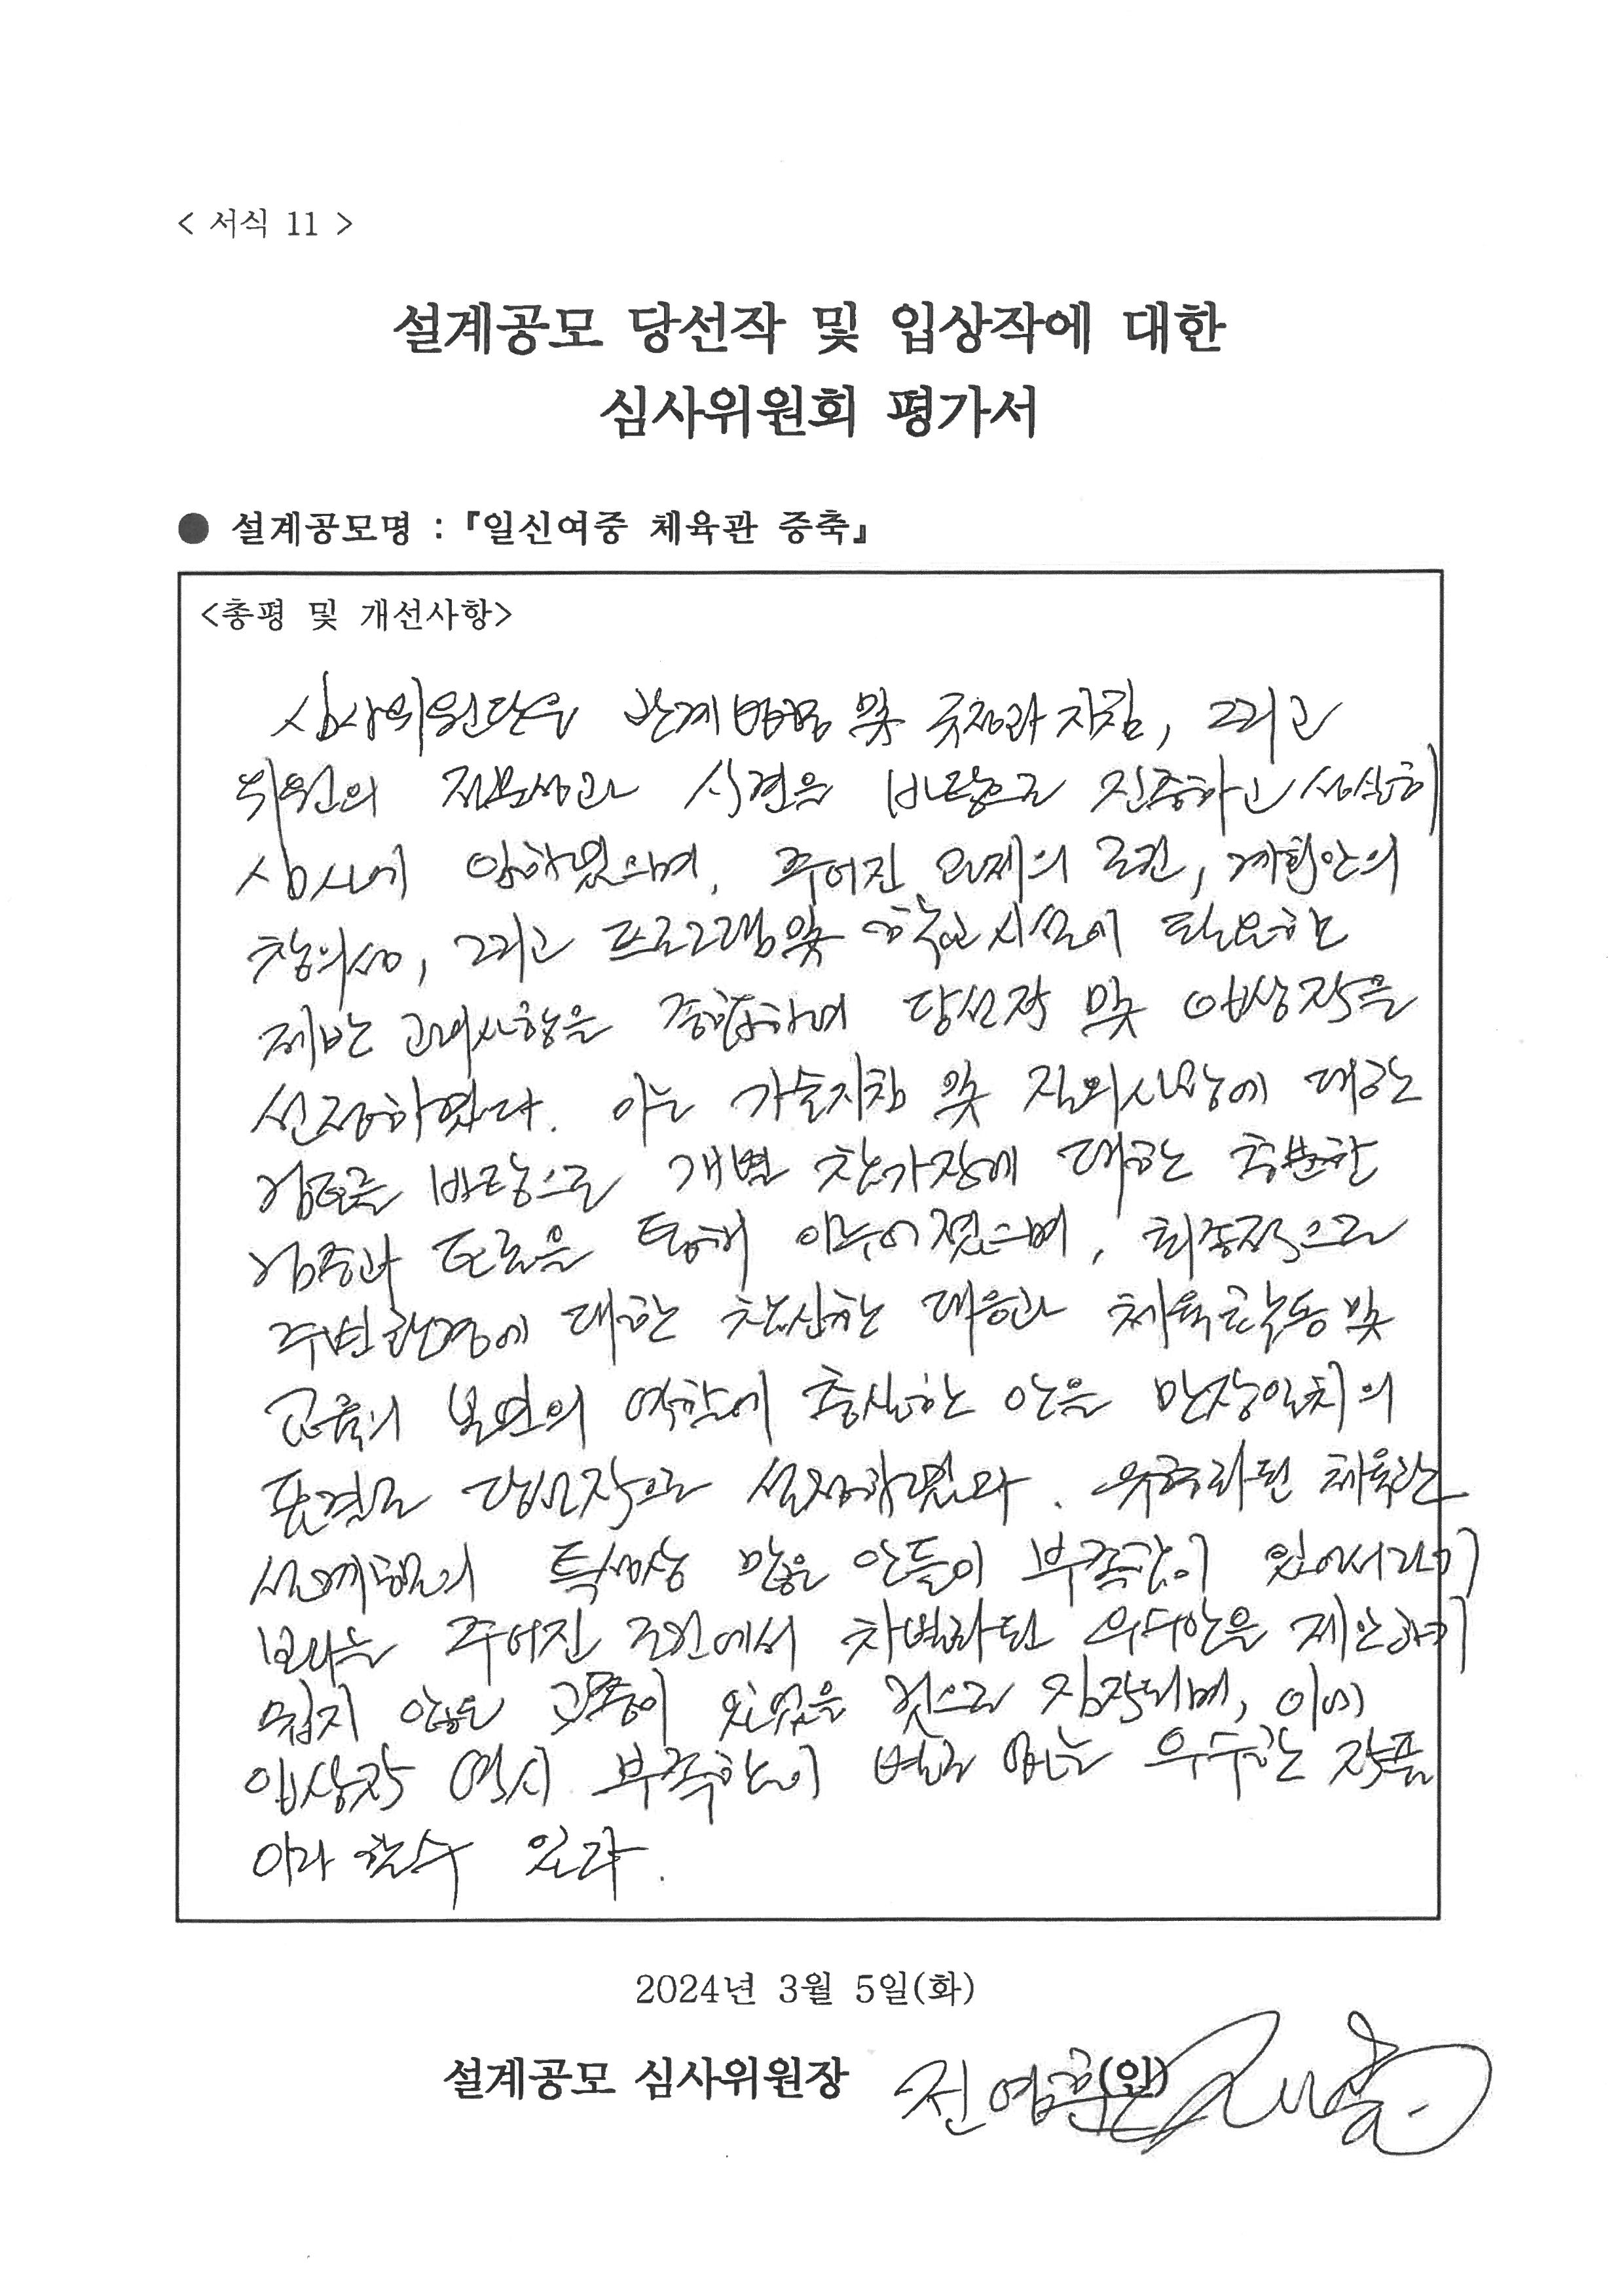 < 서식 11 >
설계공모 당선작 및 입상작에 대한
심사위원회 평가서
● 설계공모명 : 『일신여중 체육관 증축』
<총평 및 개선사항>
심사위원단은 관계법령 및 규정과 지침, 그리고
위원의 전문성과 식견을 바탕으로 진중하고 성실히
심사에 임하였으며, 주어진 과제의 조건, 계획안의
창의성, 그리고 프로그램 및 학교시설에 필요한
제반 고려사항을 종합하여 당선작 및 입상작을
선정하였다. 이는 기술지침 및 질의사항에 대한
검토를 바탕으로 개별 참가작에 대한 충분한
검증과 토론을 통해 이루어졌으며, 최종적으로
주변환경에 대한 참신한 대응과 체육활동 및
교육의 본연의 역할에 충실한 안을 만장일치의
표결로 당선작으로 선정하였다. 유형화된 체육관
설계공모의 특성상 많은 안들이 부족함이 있어서라기
보다는 주어진 조건에서 차별화된 우수안을 제안하기
쉽지 않은 고충이 있었을 것으로 짐작되며, 이에
입상작 역시 부족함이 별로 없는 우수한 작품
이라 할 수 있다.
2024년 3월 5일(화)
설계공모 심사위원장 전영훈 (인)